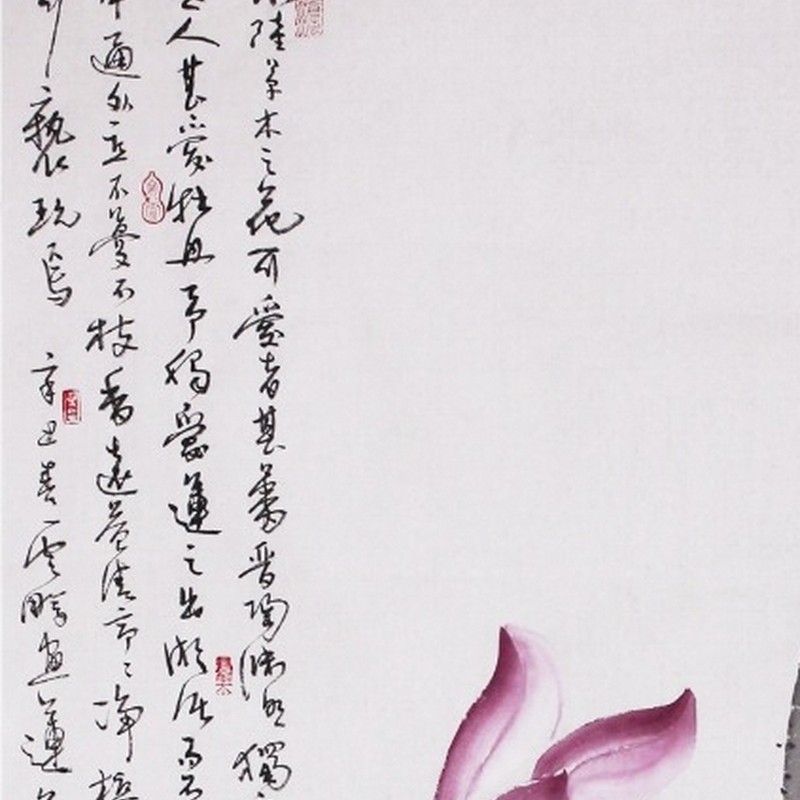 陸草木之花可愛者甚蕃晋陶渊明獨
人甚愛牡丹予獨愛蓮之出淤泥而不
中通外直不蔓不枝香遠益清亭々净植
褻玩焉 辛丑春雲畫蓮